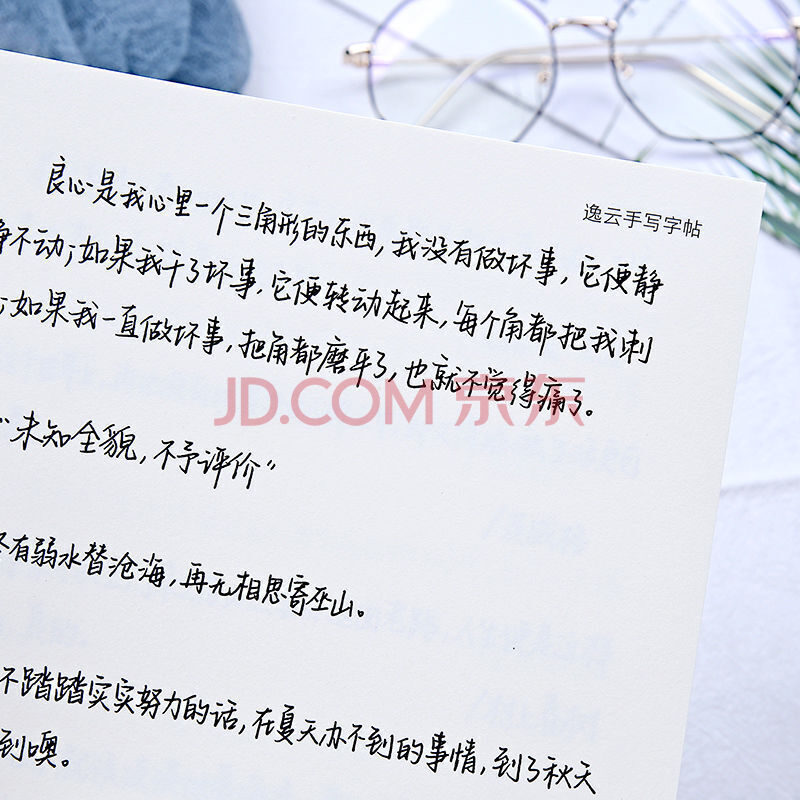 逸云手写字帖
良心是我心里一个三角形的东西，我没有做坏事，它便静
静不动；如果我干了坏事，它便转动起来，每个角都把我刺
；如果我一直做坏事，把角都磨平了，也就不觉得痛了。
JD.COM 京东
“未知全貌，不予评价”
终有弱水替沧海，再无相思寄巫山。
不踏踏实实努力的话，在夏天办不到的事情，到了秋天
到噢。